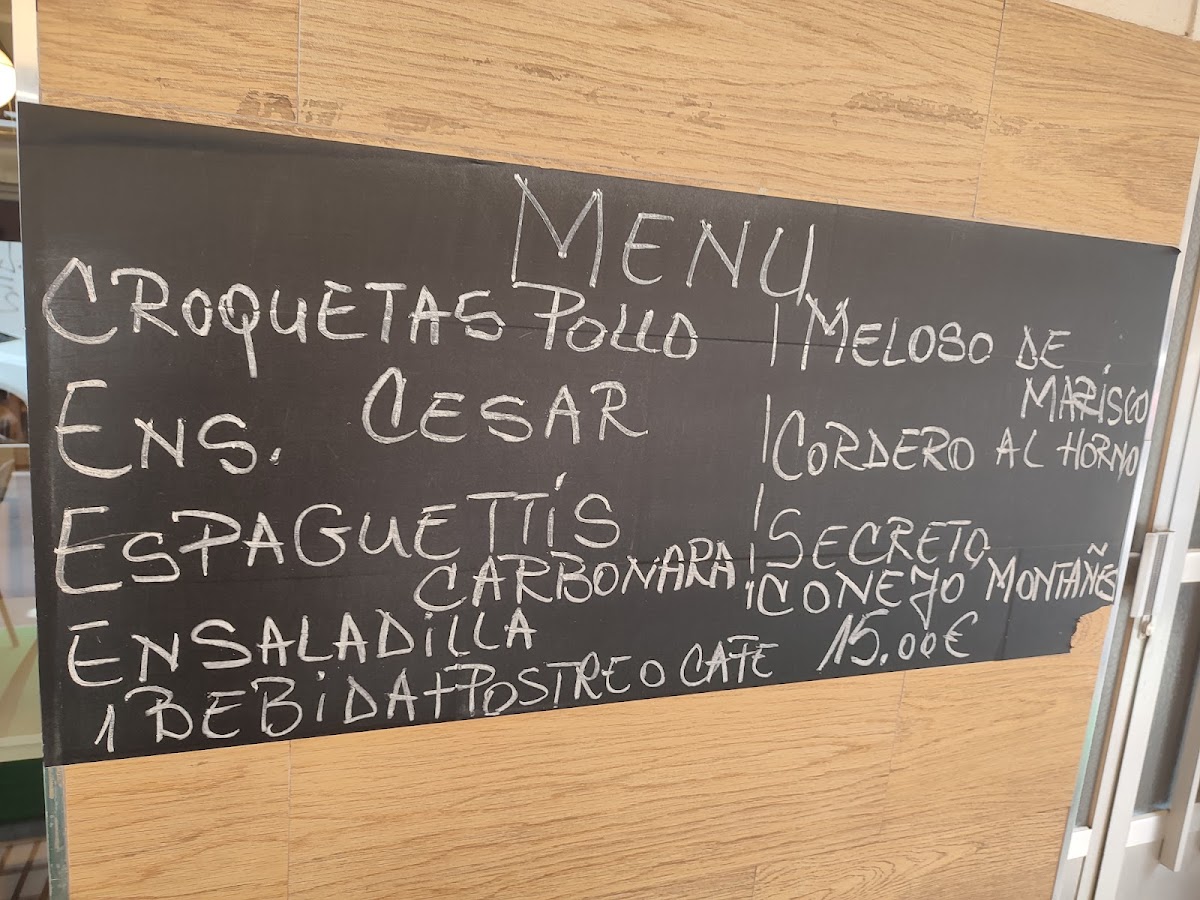 MENU
CROQUETAS POLLO
ENS. CESAR
ESPAGUETTIS
CARBONARA
ENSALADILLA
MELOSO DE
MARISCO
CORDERO AL HORNO
SECRETO,
CONEJO MONTAÑES
1 BEBIDA+POSTRE O CAFE 15.00€